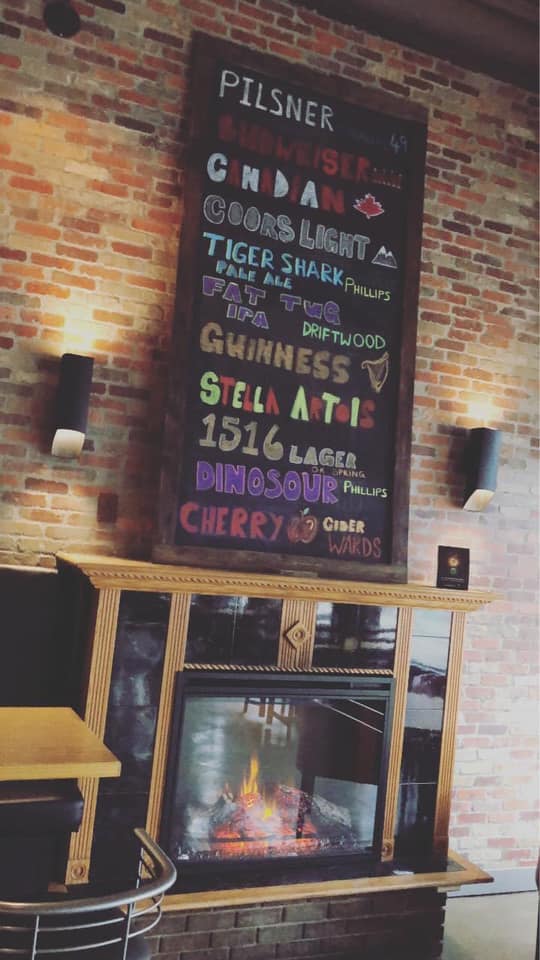 PILSNER
49
BUDWEISER
CANADIAN
COORS LIGHT
TIGER SHARK
PALE ALE PHILLIPS
FAT TUG
IPA DRIFTWOOD
GUINNESS
STELLA ARTOIS
1516 LAGER
OK SPRING
DINOSOUR PHILLIPS
CHERRY CIDER
WARDS